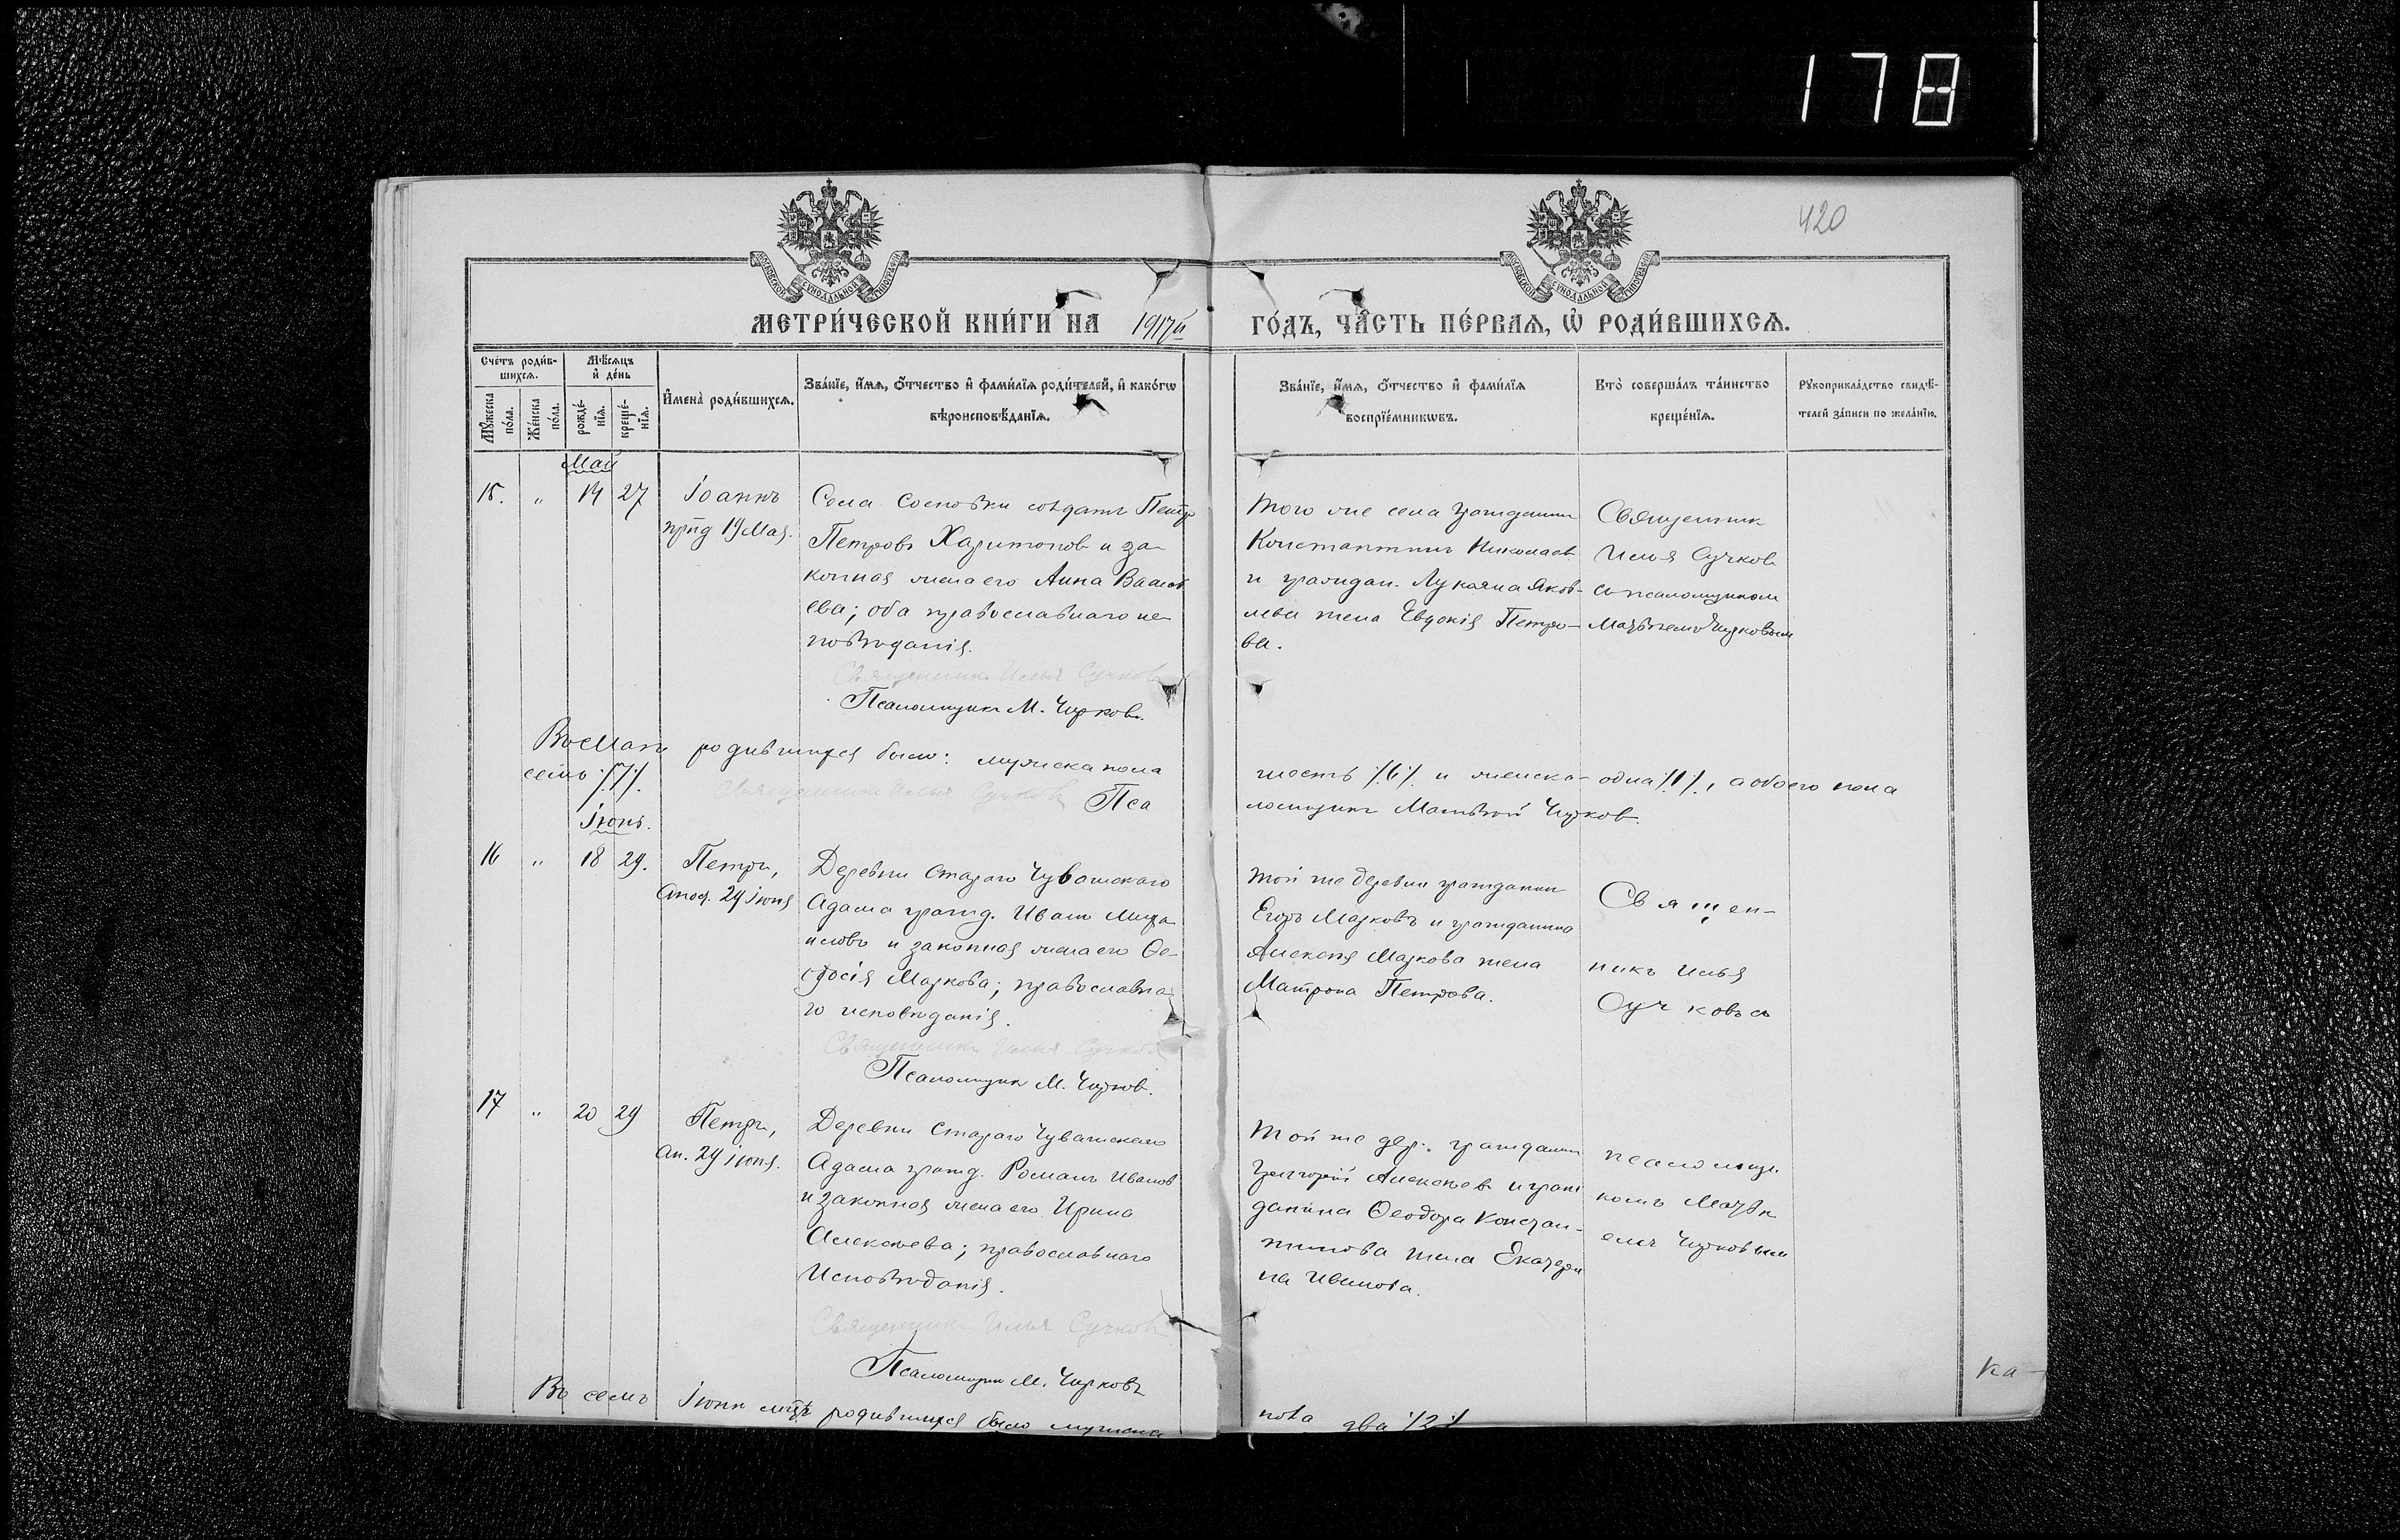 178
420
МОСКОВСКОЙ СѴНОДАЛЬНОЙ ТИПОГРАФІИ
МОСКОВСКОЙ СѴНОДАЛЬНОЙ ТИПОГРАФІИ
МЕТРИ́ЧЕСКОЙ КНИ́ГИ НА 1917й ГО́ДЪ, ЧА́СТЬ ПЕ́РВАѦ, Ѡ҆ РОДИ́ВШИХСѦ.
Сче́тъ роди́в-
шихсѧ.
Мꙋ́жеска
по́ла.
Же́нска
по́ла.
Мѣ́сѧцъ
и҆ де́нь
рожде́-
нїѧ.
креще́-
нїѧ.
И҆мена̀ роди́вшихсѧ.
Зва́нїе, и҆́мѧ, о҆́тчество и҆ фами́лїѧ роди́телей, и҆ како́гѡ
вѣроисповѣ́данїѧ.
Зва́нїе, и҆́мѧ, о҆́тчество и҆ фами́лїѧ
воспрїе́мникѡвъ.
Кто̀ соверша́лъ та́инство
креще́нїѧ.
Рꙋкоприкла́дство свидѣ́-
телей за́писи по жела́нїю.
Май
15. " 14 27
Іоаннъ
прпд 19 Мая.
Села Сосновки солдатъ Петръ
Петровъ Харитоновъ и за-
конная жена его Анна Васил
ева; оба православнаго ис-
повѣданія.
Священникъ Илья Сучковъ
Псаломщикъ М. Чирковъ.
Того же села гражданинъ
Константинъ Николаевъ
и граждан. Лукаяна Яков-
лева жена Евдокія Петро-
ва.
Священникъ
Илья Сучковъ
съ псаломщикомъ
Матвѣемъ Чирковымъ
Въ Маѣ родившихся было: мужска пола шесть /6/ и женска одна /1/, а обоего пола
семь /7/.
Священникъ Илья Сучковъ Псаломщикъ Матвѣй Чирковъ.
Іюнь.
16 " 18 29.
Петръ,
Апос. 29 іюня
Деревни Стараго Чувашскаго
Адама гражд. Иванъ Миха-
иловъ и законная жена его Ѳе-
одосія Маркова; православна-
го исповѣданія.
Священникъ Илья Сучковъ
Псаломщикъ М. Чирковъ.
Той же деревни гражданинъ
Егоръ Марковъ и гражданина
Алексѣя Маркова жена
Матрона Петрова.
Священ-
никъ Илья
Сучковъ съ
17 " 20 29
Петръ,
ап. 29 іюня.
Деревни Стараго Чувашскаго
Адама гражд. Романъ Ивановъ
и законная жена его Ирина
Алексѣева; православнаго
Исповѣданія.
Священникъ Илья Сучковъ
Псаломщикъ М. Чирковъ
Той же дер. гражданинъ
Григорій Алексѣевъ и граж
данина Ѳеодора Констан-
тинова жена Екатери
на Иванова.
псаломщи
комъ Матвѣ
емъ Чирковымъ
Въ семъ Іюнѣ мѣсцѣ родившихся было мужска пола два /2/
ка-